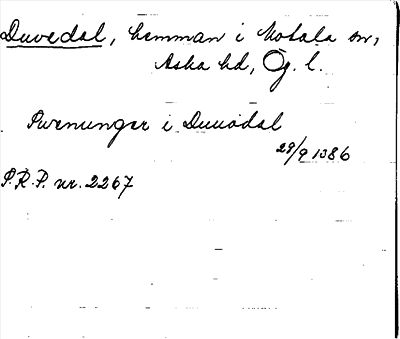 Duvedal, hemman i Motala sn,
Aska hd, Ög. l.
Swenunger i Duuødal
29/9 1386
P.R.P. nr. 2267